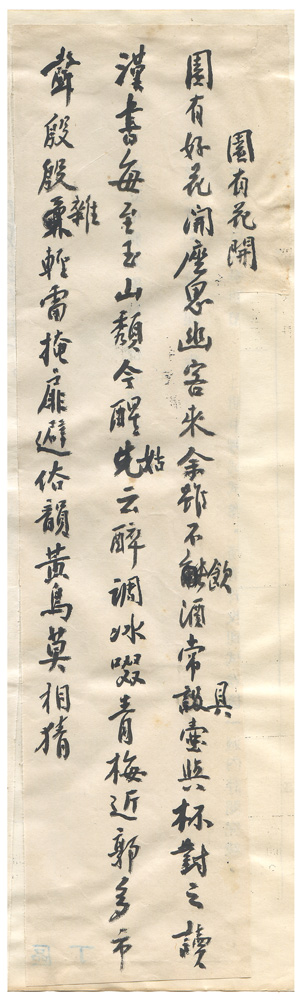 園有花開
園有好花開思幽客來余雖不飲酒常具壺與杯對之讀
漢書每至玉山頹今醒姑云醉調冰啜青梅近郭多市
聲殷殷雜輕雷掩扉避俗韻黃鳥莫相猜